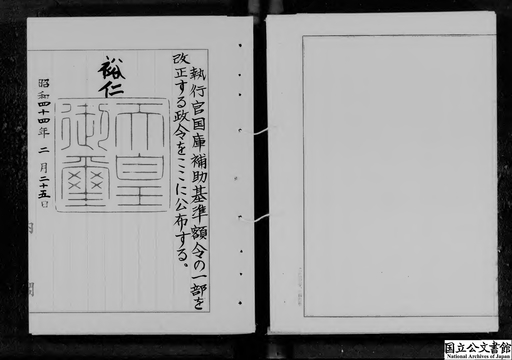 執行官国庫補助基準額令の一部を
改正する政令をここに公布する。
裕仁
天皇
御璽
昭和四十四年 二 月 二十五日
国立公文書館
National Archives of Japan